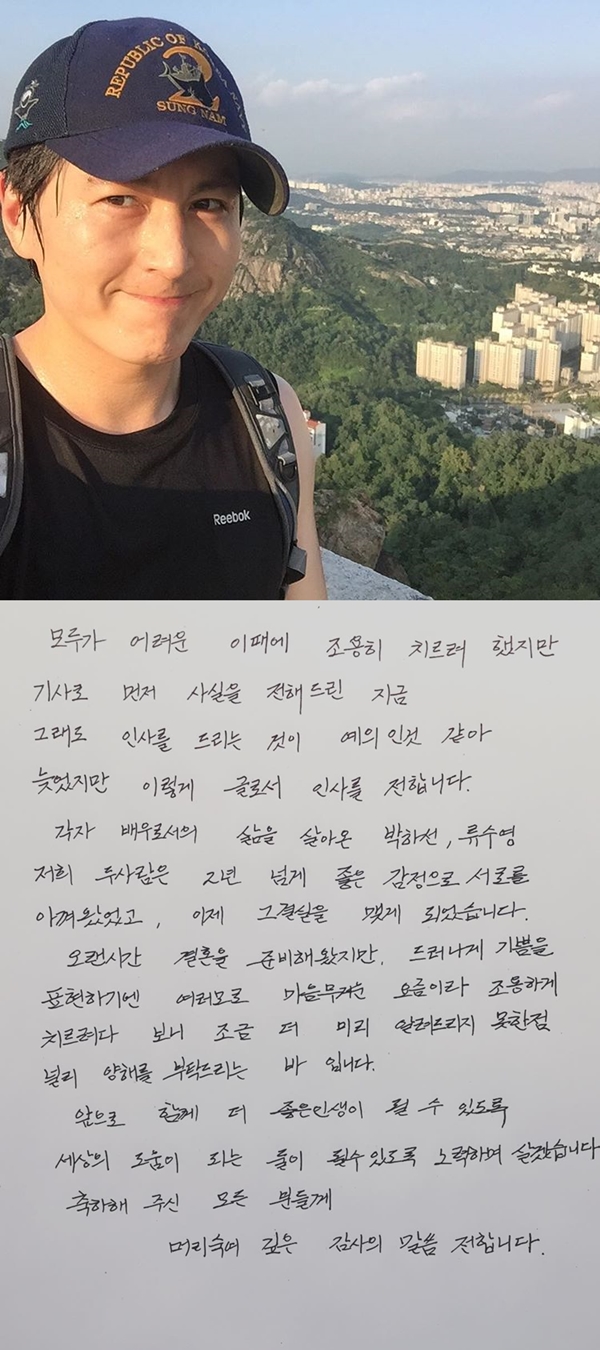 REPUBLIC OF KOREA NAVY
2
SUNG NAM
Reebok
모두가 어려운 이때에 조용히 치르려 했지만
기사로 먼저 사실을 전해드린 지금
그래도 인사를 드리는 것이 예의인것 같아
늦었지만 이렇게 글로서 인사를 전합니다.
각자 배우로서의 삶을 살아온 박하선, 류수영
저희 두사람은 2년 넘게 좋은 감정으로 서로를
아껴왔었고, 이제 그결실을 맺게 되었습니다.
오랜시간 결혼을 준비해왔지만, 드러나게 기쁨을
표현하기엔 여러모로 마음무거운 요즘이라 조용하게
치르려다 보니 조금 더 미리 알려드리지 못한점
널리 양해를 부탁드리는 바 입니다.
앞으로 함께 더 좋은인생이 될 수 있도록
세상의 도움이 되는 둘이 될수있도록 노력하며 살겠습니다
축하해 주신 모든 분들께
머리숙여 깊은 감사의 말씀 전합니다.